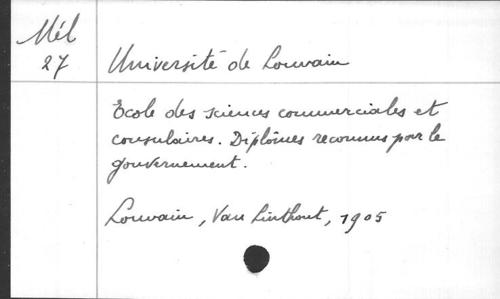 Mél
27
Université de Louvain
Ecole des sciences commerciales et
consulaires. Diplômes reconnus par le
gouvernement.
Louvain, Van Linthout, 1905